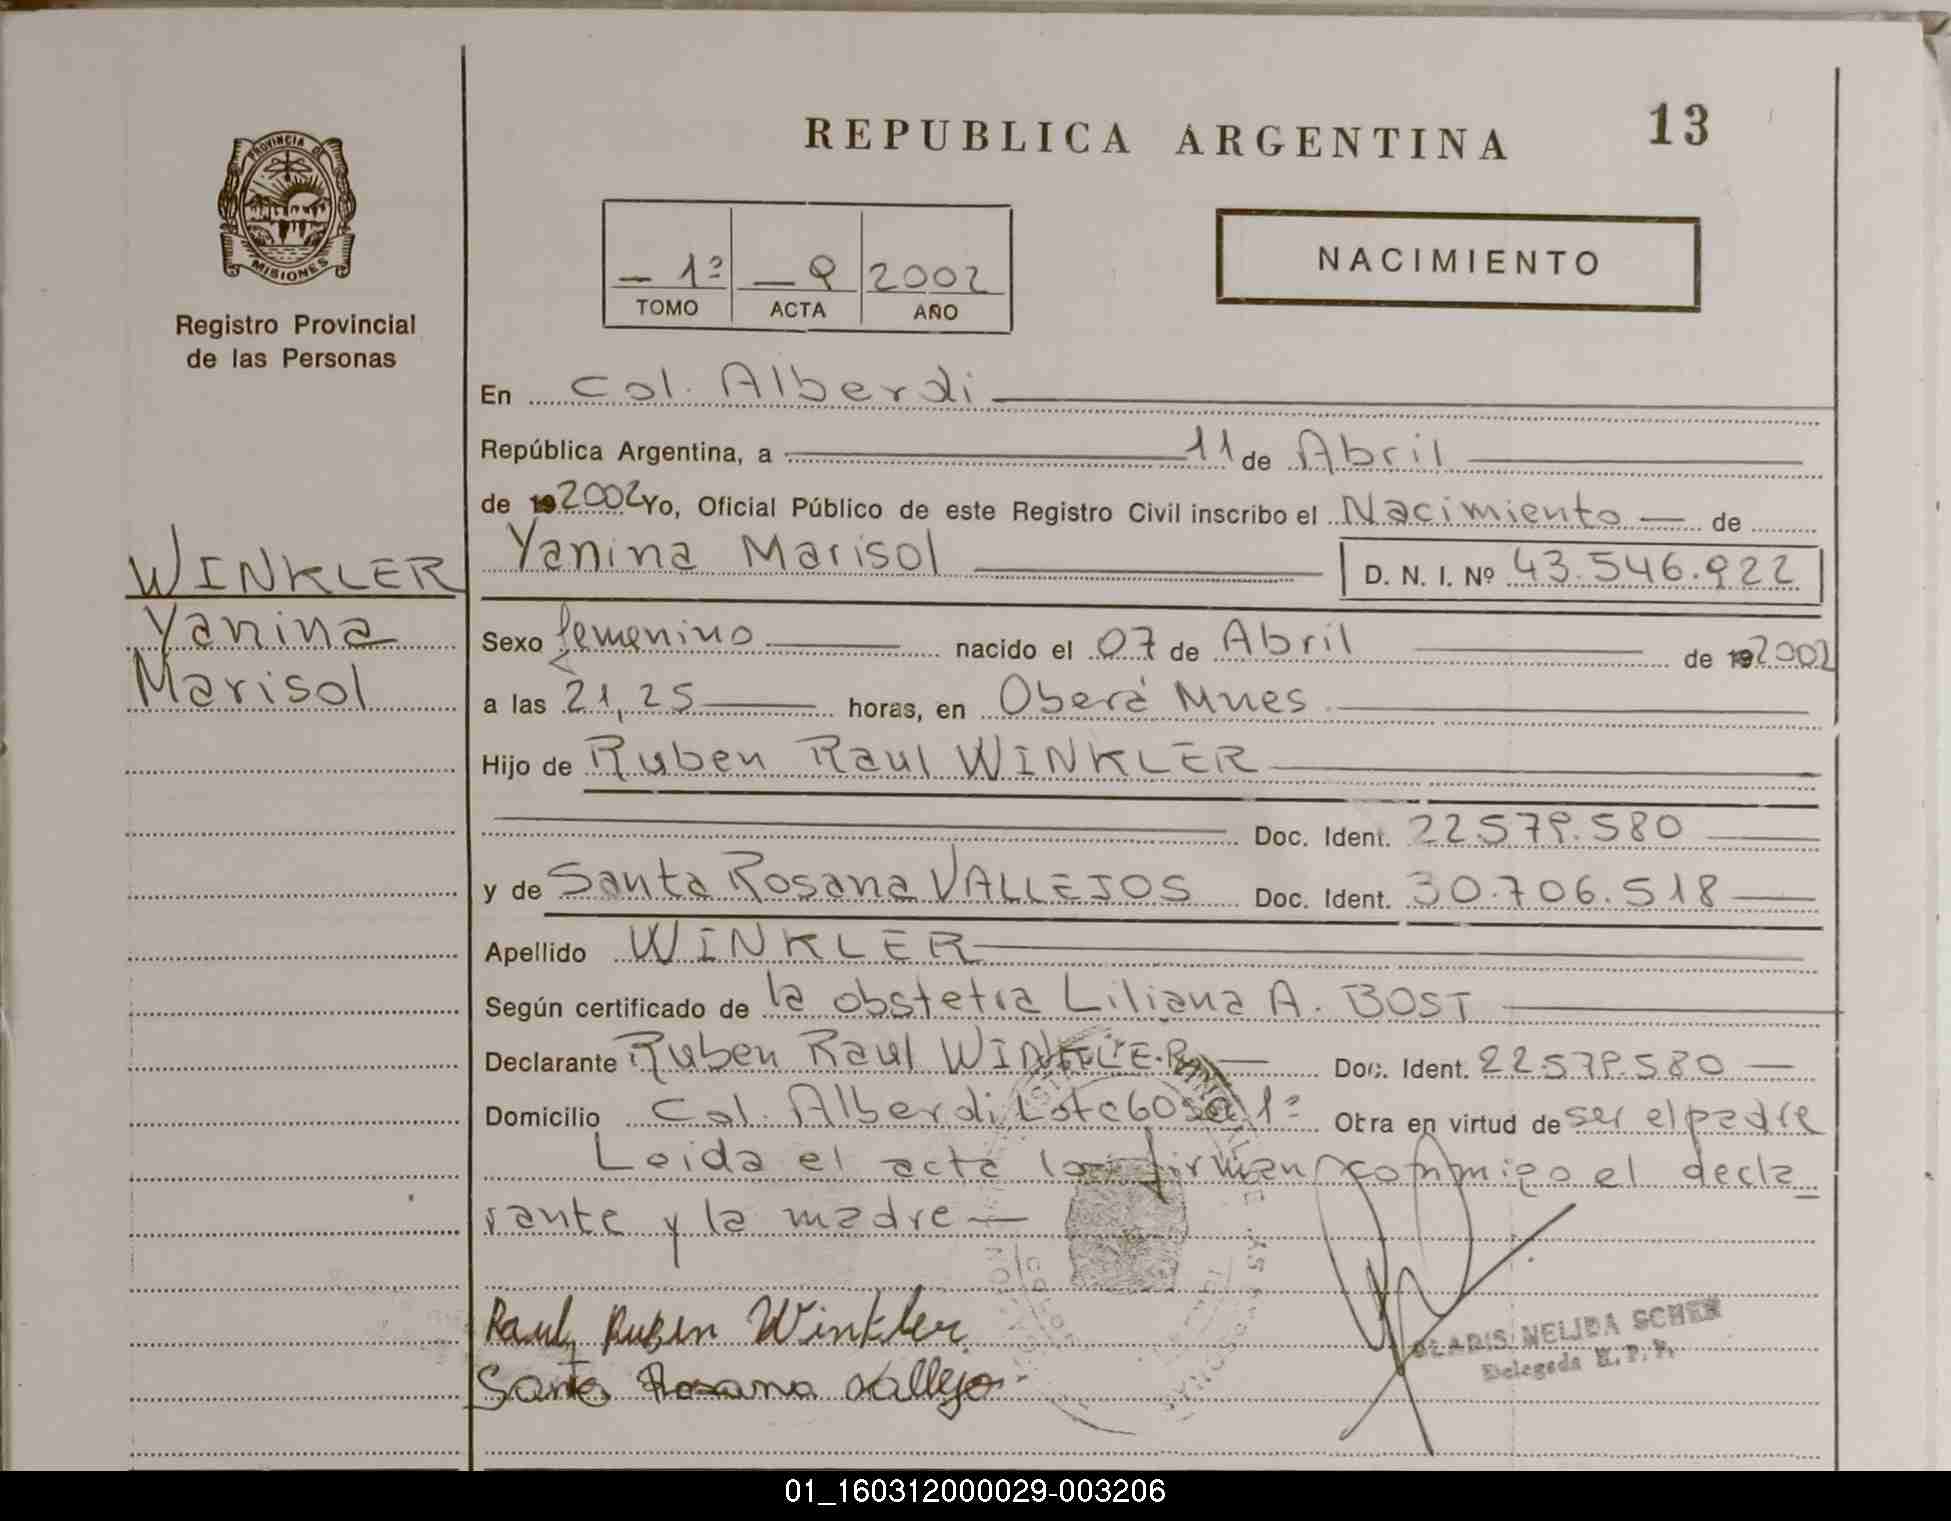 REPUBLICA ARGENTINA
13
PROVINCIA DE
MISIONES
Registro Provincial
de las Personas
1º 9 2002
TOMO ACTA AÑO
NACIMIENTO
En Col. Alberdi
República Argentina, a 11 de Abril
de 19 2002 Yo, Oficial Público de este Registro Civil inscribo el Nacimiento — de
WINKLER
Yanina
Marisol
Yanina Marisol D. N. I. Nº 43.546.922
Sexo femenino nacido el 07 de Abril de 19 2002
a las 21,25 horas, en Oberá Mnes
Hijo de Ruben Raul WINKLER
Doc. Ident. 22.579.580
y de Santa Rosana VALLEJOS Doc. Ident. 30.706.518
Apellido WINKLER
Según certificado de la obstetra Liliana A. BOST
Declarante Ruben Raul WINKLER Doc. Ident. 22.579.580
Domicilio Col. Alberdi Lote 60 1º Obra en virtud de ser el padre
Leida el acta la firman conmigo el decla
rante y la madre
Raul Ruben Winkler
Santa Rosana Vallejo
NELIDA
Delegada R. P. P.
01_160312000029-003206